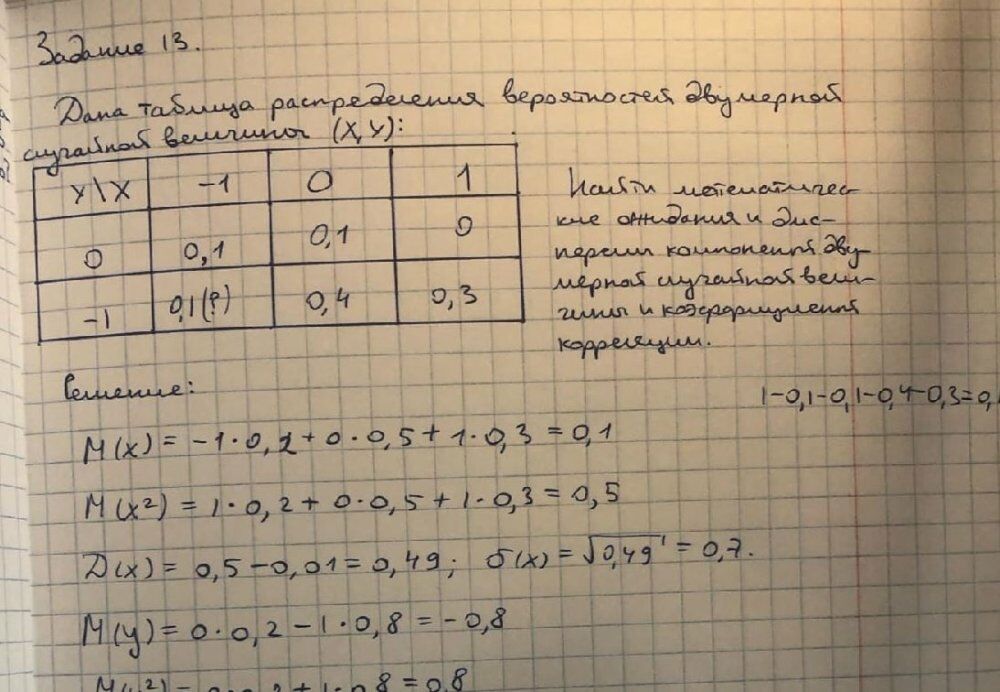 Задание 13.
Дана таблица распределения вероятностей двумерной
случайной величины (X,Y):
Y\X -1 0 1
0 0,1 0,1 0
-1 0,1(?) 0,4 0,3
Найти математичес-
кие ожидания и дис-
персии компонент дву-
мерной случайной вели-
чины и коэффициент
корреляции.
Решение:
1-0,1-0,1-0,4-0,3=0,
M(x) = -1·0,2+0·0,5+1·0,3=0,1
M(x²) = 1·0,2+0·0,5+1·0,3=0,5
D(x) = 0,5-0,01=0,49; σ(x)=√0,49=0,7.
M(y)=0·0,2-1·0,8=-0,8
1·0,8=0,8